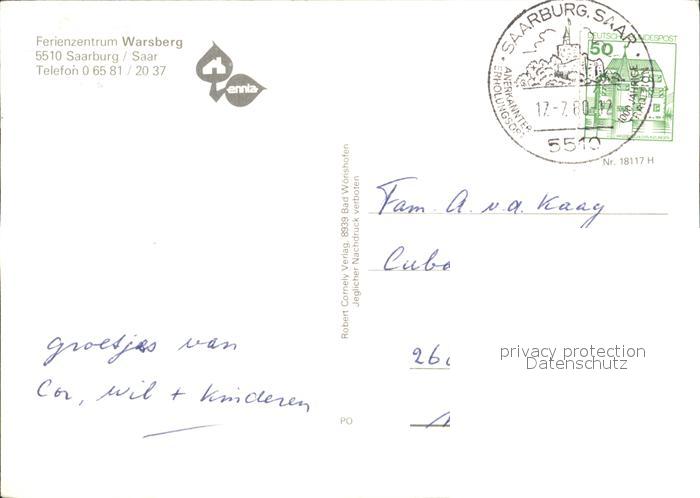 Ferienzentrum Warsberg
5510 Saarburg / Saar
Telefon 0 65 81 / 20 37
ennia
SAARBURG, SAAR
ANERKANNTER
ERHOLUNGSORT
17.-7.80.-12
5510
50
DEUTSCHE BUNDESPOST
Nr. 18117 H
Robert Cornely Verlag, 8939 Bad Wörishofen
Jeglicher Nachdruck verboten
Fam. A. v.d. Kaag
Cubo
26
privacy protection
Datenschutz
groetjes van
Cor, Wil + Kinderen
PO